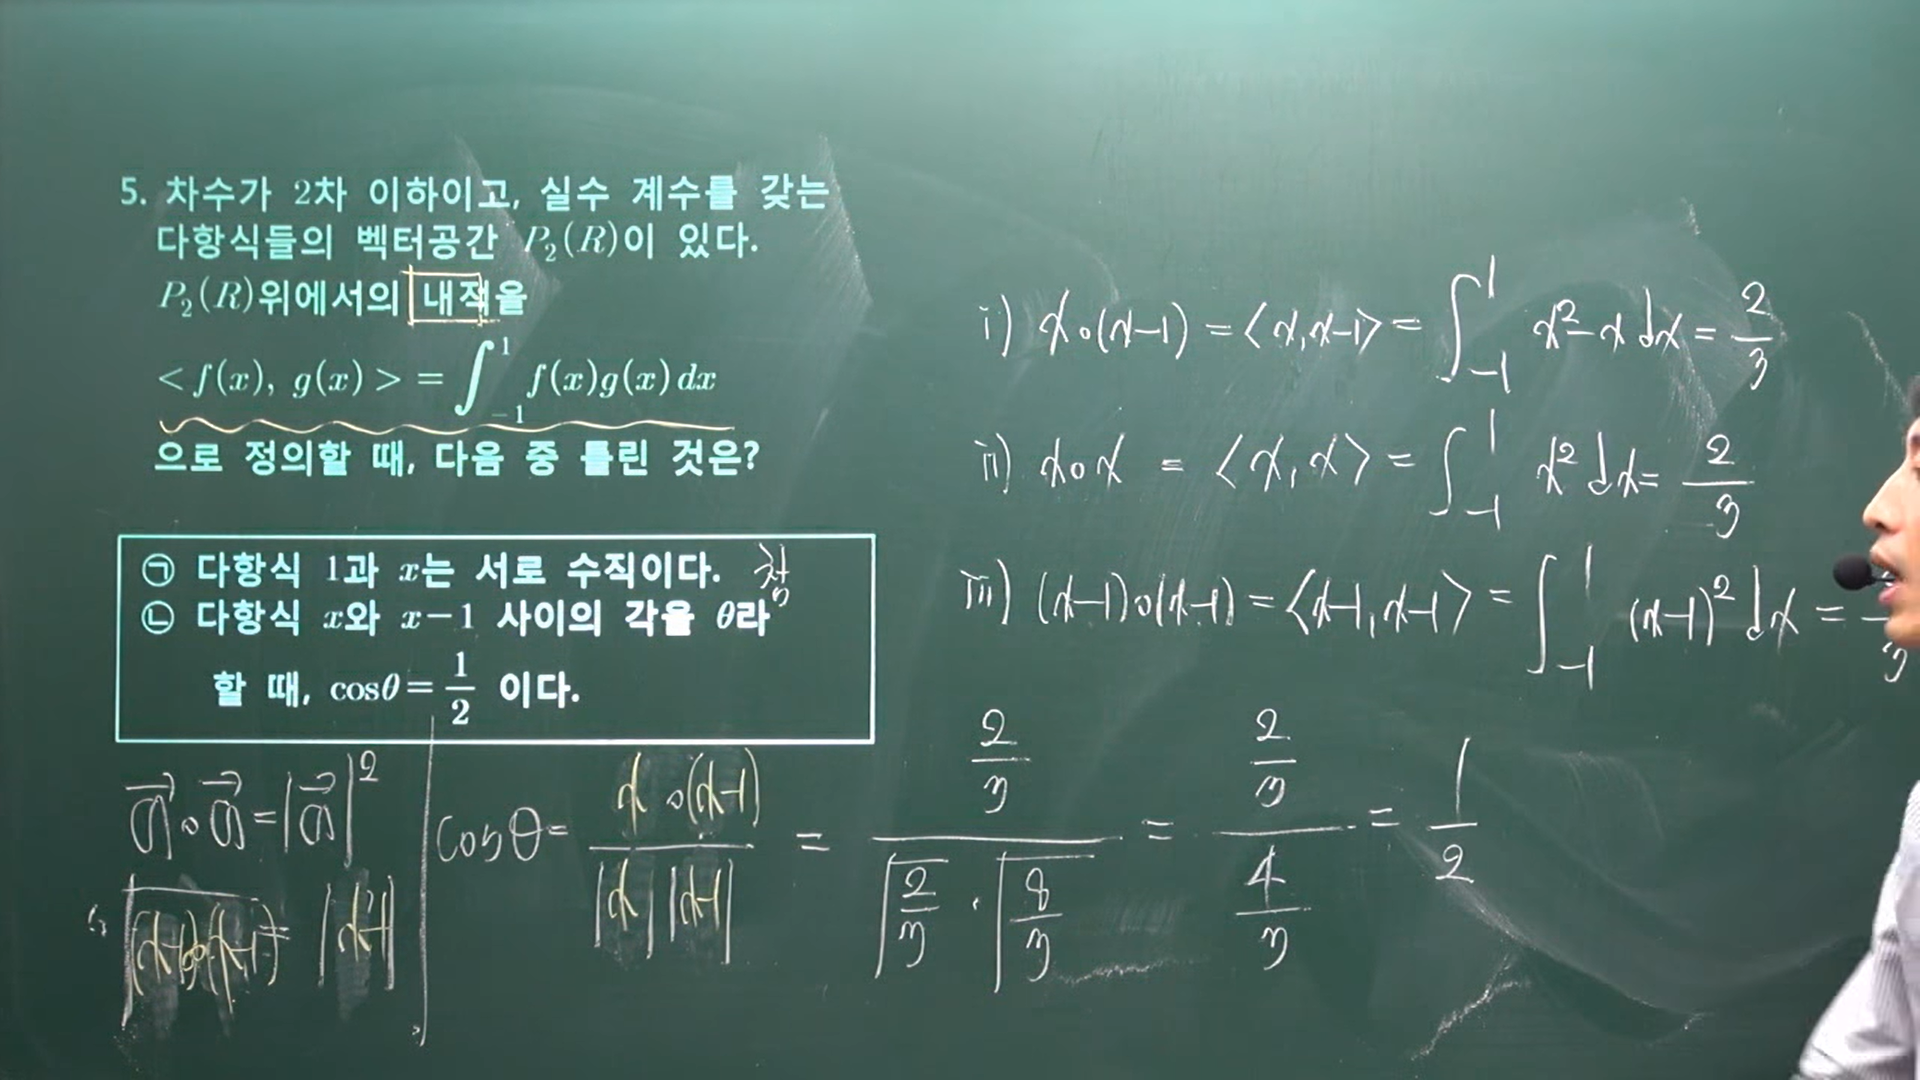 5. 차수가 2차 이하이고, 실수 계수를 갖는
다항식들의 벡터공간 P₂(R)이 있다.
P₂(R)위에서의 내적을
< f(x), g(x) > = ∫₋₁¹ f(x)g(x)dx
으로 정의할 때, 다음 중 틀린 것은?
㉠ 다항식 1과 x는 서로 수직이다. 참
㉡ 다항식 x와 x−1 사이의 각을 θ라
할 때, cosθ = 1/2 이다.
a⃗∘a⃗ = |a⃗|²
√(x-1)∘(x-1) = |x-1|
cosθ = x∘(x-1) / |x||x-1| = (2/3) / (√(2/3) · √(8/3)) = (2/3) / (4/3) = 1/2
i) x∘(x-1) = <x, x-1> = ∫₋₁¹ x²-x dx = 2/3
ii) x∘x = <x, x> = ∫₋₁¹ x² dx = 2/3
iii) (x-1)∘(x-1) = <x-1, x-1> = ∫₋₁¹ (x-1)² dx =